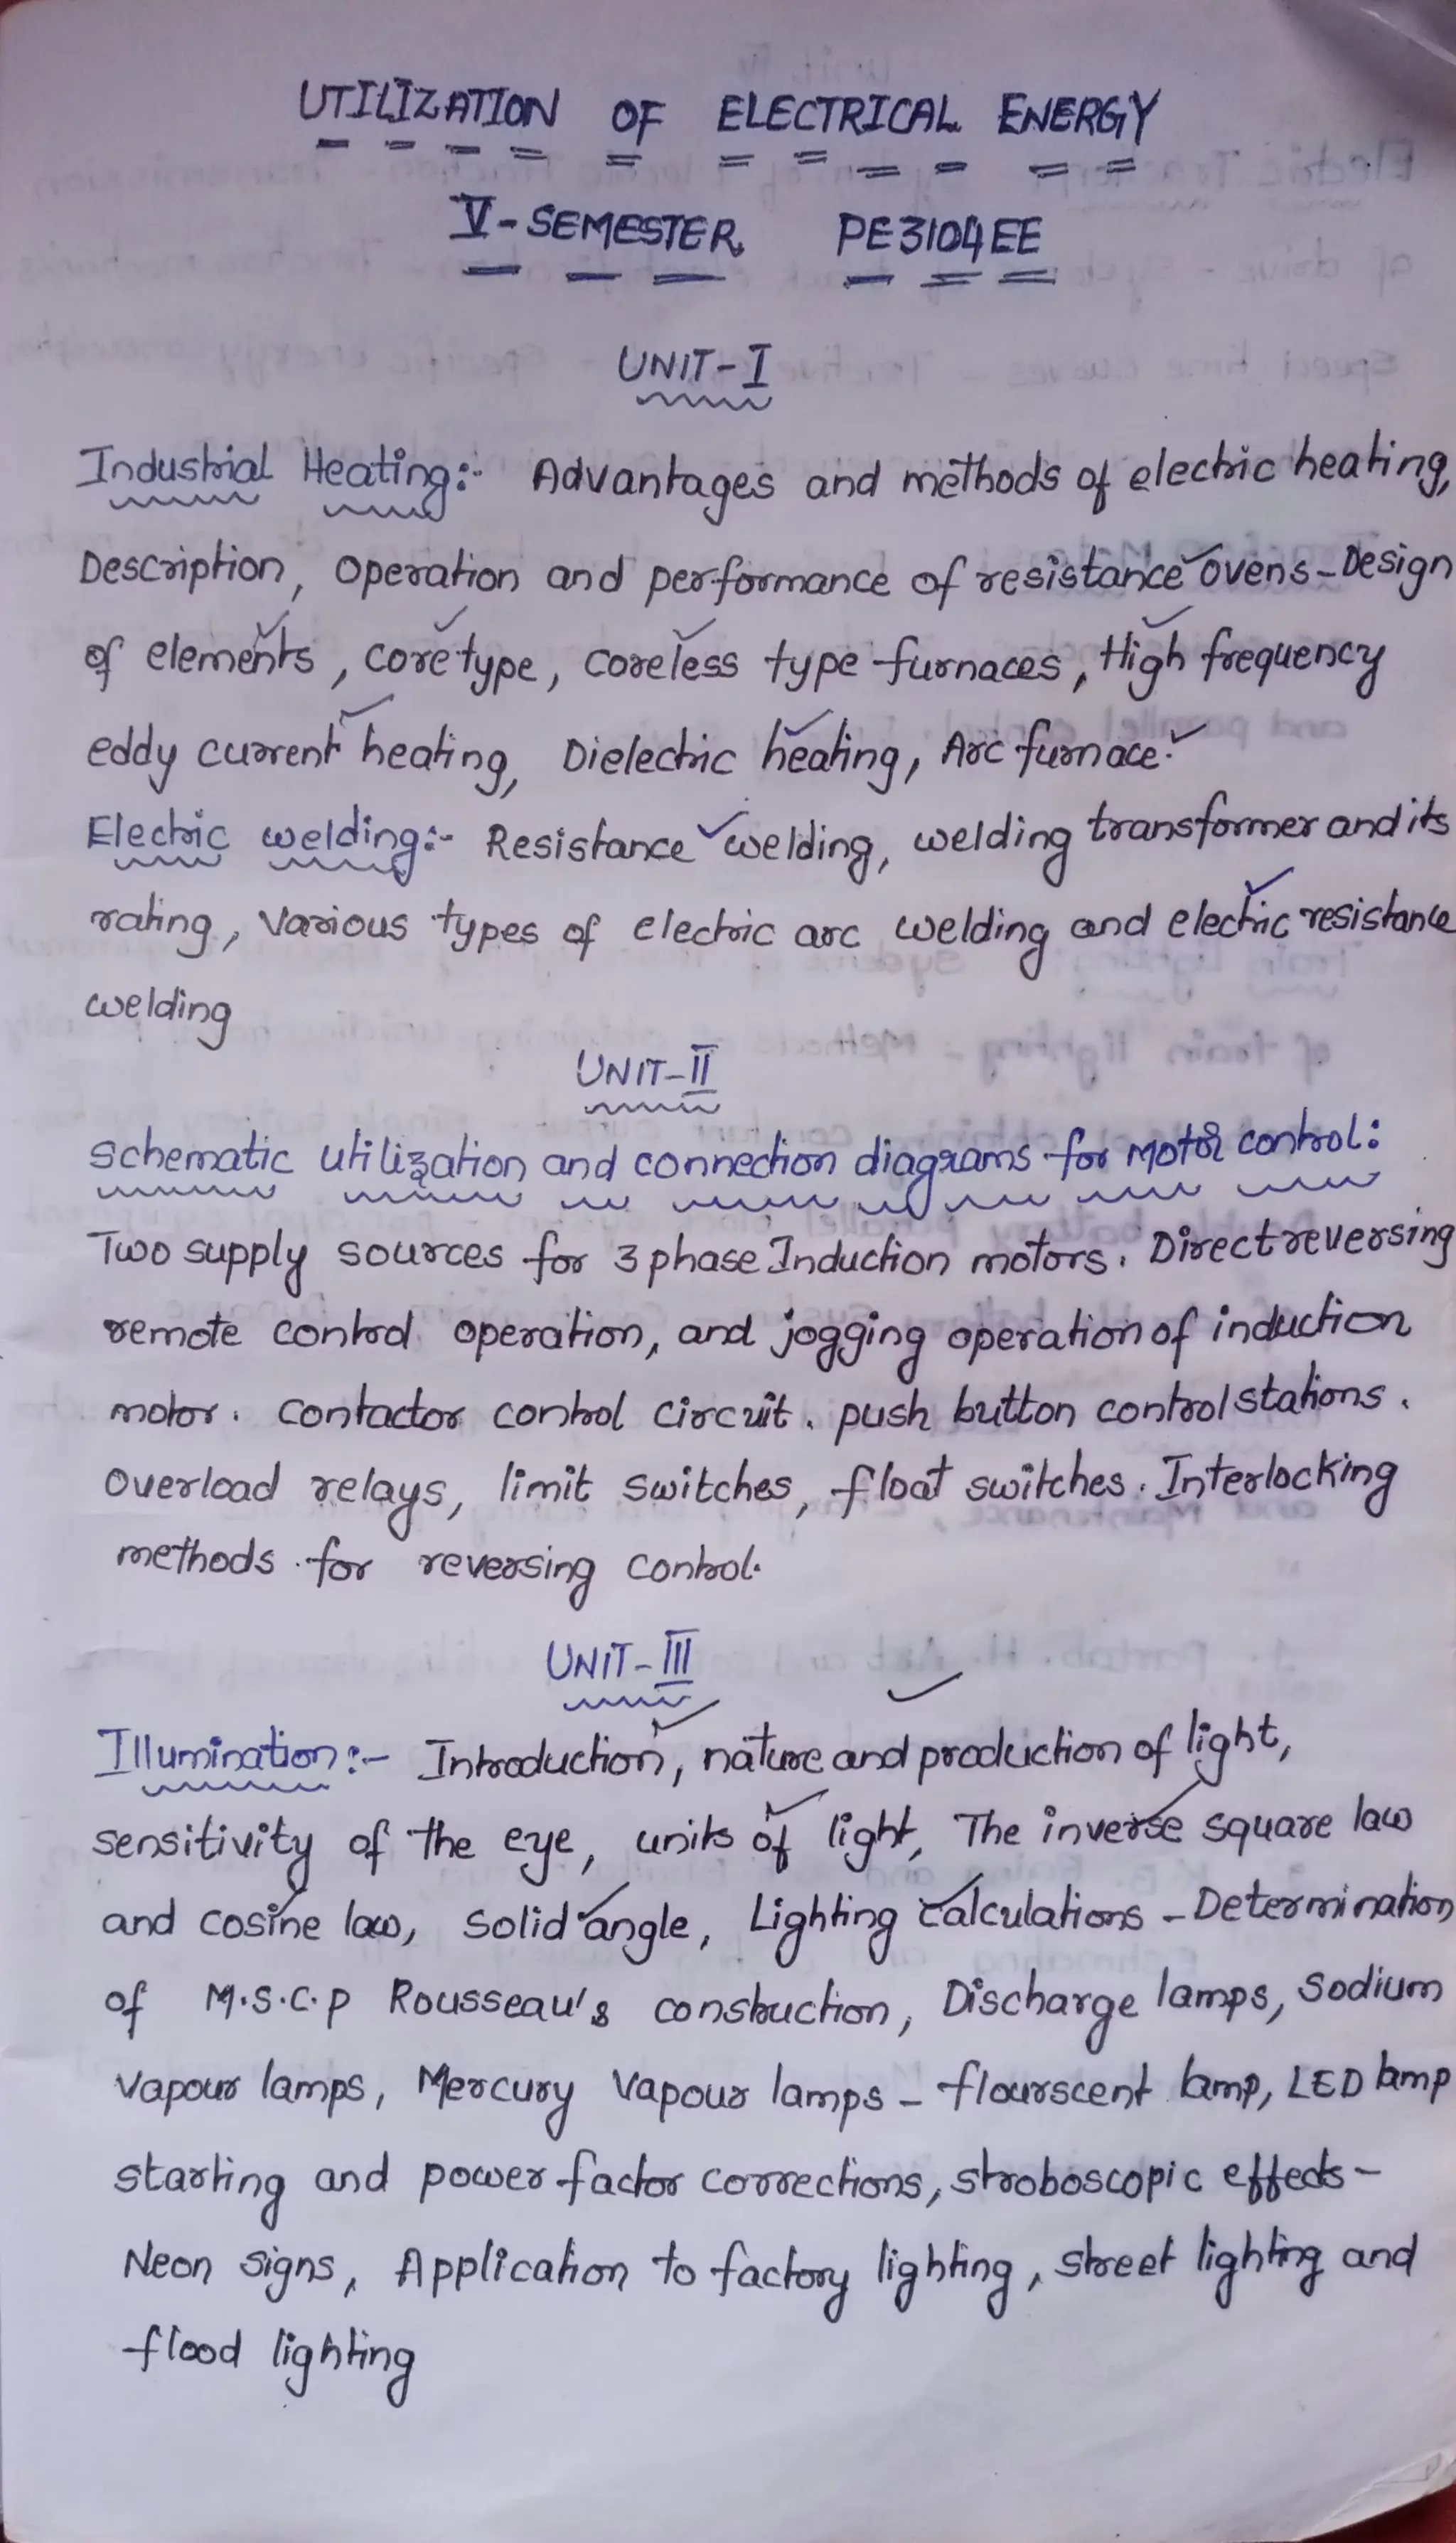 UTILIZATION OF ELECTRICAL ENERGY
V-SEMESTER PE3104EE
UNIT-I
Industrial Heating:- Advantages and methods of electric heating,
Description, Operation and performance of resistance ovens-Design
of elements, core type, coreless type furnaces, High frequency
eddy current heating, Dielectric heating, Arc furnace.
Electric welding:- Resistance welding, welding transformer and its
rating, Various types of electric arc welding and electric resistance
welding
UNIT-II
Schematic utilization and connection diagrams for Motor control:
Two supply sources for 3 phase Induction motors. Direct reversing
remote control operation, and jogging operation of induction
motor. contactor control circuit. push button control stations.
Overload relays, limit switches, float switches. Interlocking
methods for reversing control.
UNIT-III
Illumination:- Introduction, nature and production of light,
sensitivity of the eye, units of light, The inverse square law
and cosine law, solid angle, Lighting calculations - Determination
of M.S.C.P Rousseau's construction, Discharge lamps, Sodium
vapour lamps, Mercury vapour lamps - flourscent lamp, LED lamp
starting and power factor corrections, stroboscopic effects-
Neon signs, Application to factory lighting, street lighting and
flood lighting